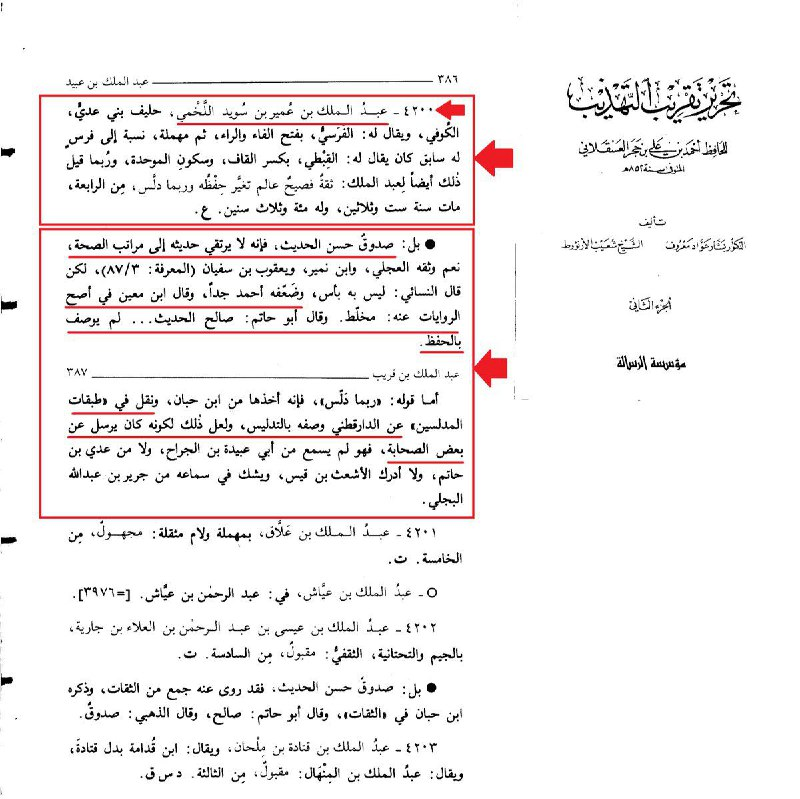 تحرير تقريب التهذيب
للحافظ أحمد بن علي بن حجر العسقلاني
المتوفى سنة ٨٥٢هـ
تأليف
الدكتور بشار عواد معروف الشيخ شعيب الأرنؤوط
الجزء الثاني
مؤسسة الرسالة
٣٨٦ عبد الملك بن عبيد
٤٢٠٠ - عبدُ الملك بن عُمير بن سُويد اللَّخْمي، حليف بني عديٍّ،
الكُوفي، ويقال له: الفَرَسيُّ، بفتح الفاء والراء، ثم مهملة، نسبة إلى فرسٍ
له سابق كان يقال له: القِبْطي، بكسر القاف، وسكونِ الموحدة، ورُبما قيل
ذٰلك أيضاً لِعبد الملك: ثقةٌ فصيحٌ عالم تغيَّر حِفْظُه وربما دلَّس، مِن الرابعة،
مات سنة ست وثلاثين، وله مئة وثلاث سنين. ع.
● بل: صدوقٌ حسن الحديث، فإنه لا يرتقي حديثه إلى مراتب الصحة،
نعم وثقه العجلي، وابن نمير، ويعقوب بن سفيان (المعرفة: ٨٧/٣)، لكن
قال النسائي: ليس به بأس، وضَعَّفه أحمد جداً، وقال ابن معين في أصح
الروايات عنه: مخلّط. وقال أبو حاتم: صالح الحديث... لم يوصف
بالحفظ.
عبد الملك بن قريب ٣٨٧
أما قوله: «ربما دَلَّس»، فإنه أخذها من ابن حبان، ونقل في «طبقات
المدلسين» عن الدارقطني وصفه بالتدليس، ولعل ذٰلك لكونه كان يرسل عن
بعض الصحابة، فهو لم يسمع من أبي عبيدة بن الجراح، ولا من عدي بن
حاتم، ولا أدرك الأشعث بن قيس، ويشك في سماعه من جرير بن عبدالله
البجلي.
٤٢٠١ - عبدُ الملك بن عَلَّاق، بمهملة ولام مثقلة: مجهولٌ، مِن
الخامسة. ت.
○ - عبدُ الملك بن عيَّاش، في: عبد الرحمٰن بن عيَّاش. [=٣٩٧٦].
٤٢٠٢ - عبدُ الملك بن عيسى بن عبد الرحمٰن بن العلاء بن جارية،
بالجيم والتحتانية، الثقفيُّ: مقبولٌ، مِن السادسة. ت.
● بل: صدوقٌ حسن الحديث، فقد روى عنه جمع من الثقات، وذكره
ابن حبان في «الثقات»، وقال أبو حاتم: صالح، وقال الذهبي: صدوقٌ.
٤٢٠٣ - عبدُ الملك بن قتادة بن مِلْحان، ويقال: ابن قُدامة بدل قتادةَ،
ويقال: عبدُ الملك بن المِنْهَال: مقبولٌ، مِن الثالثة. د س ق.